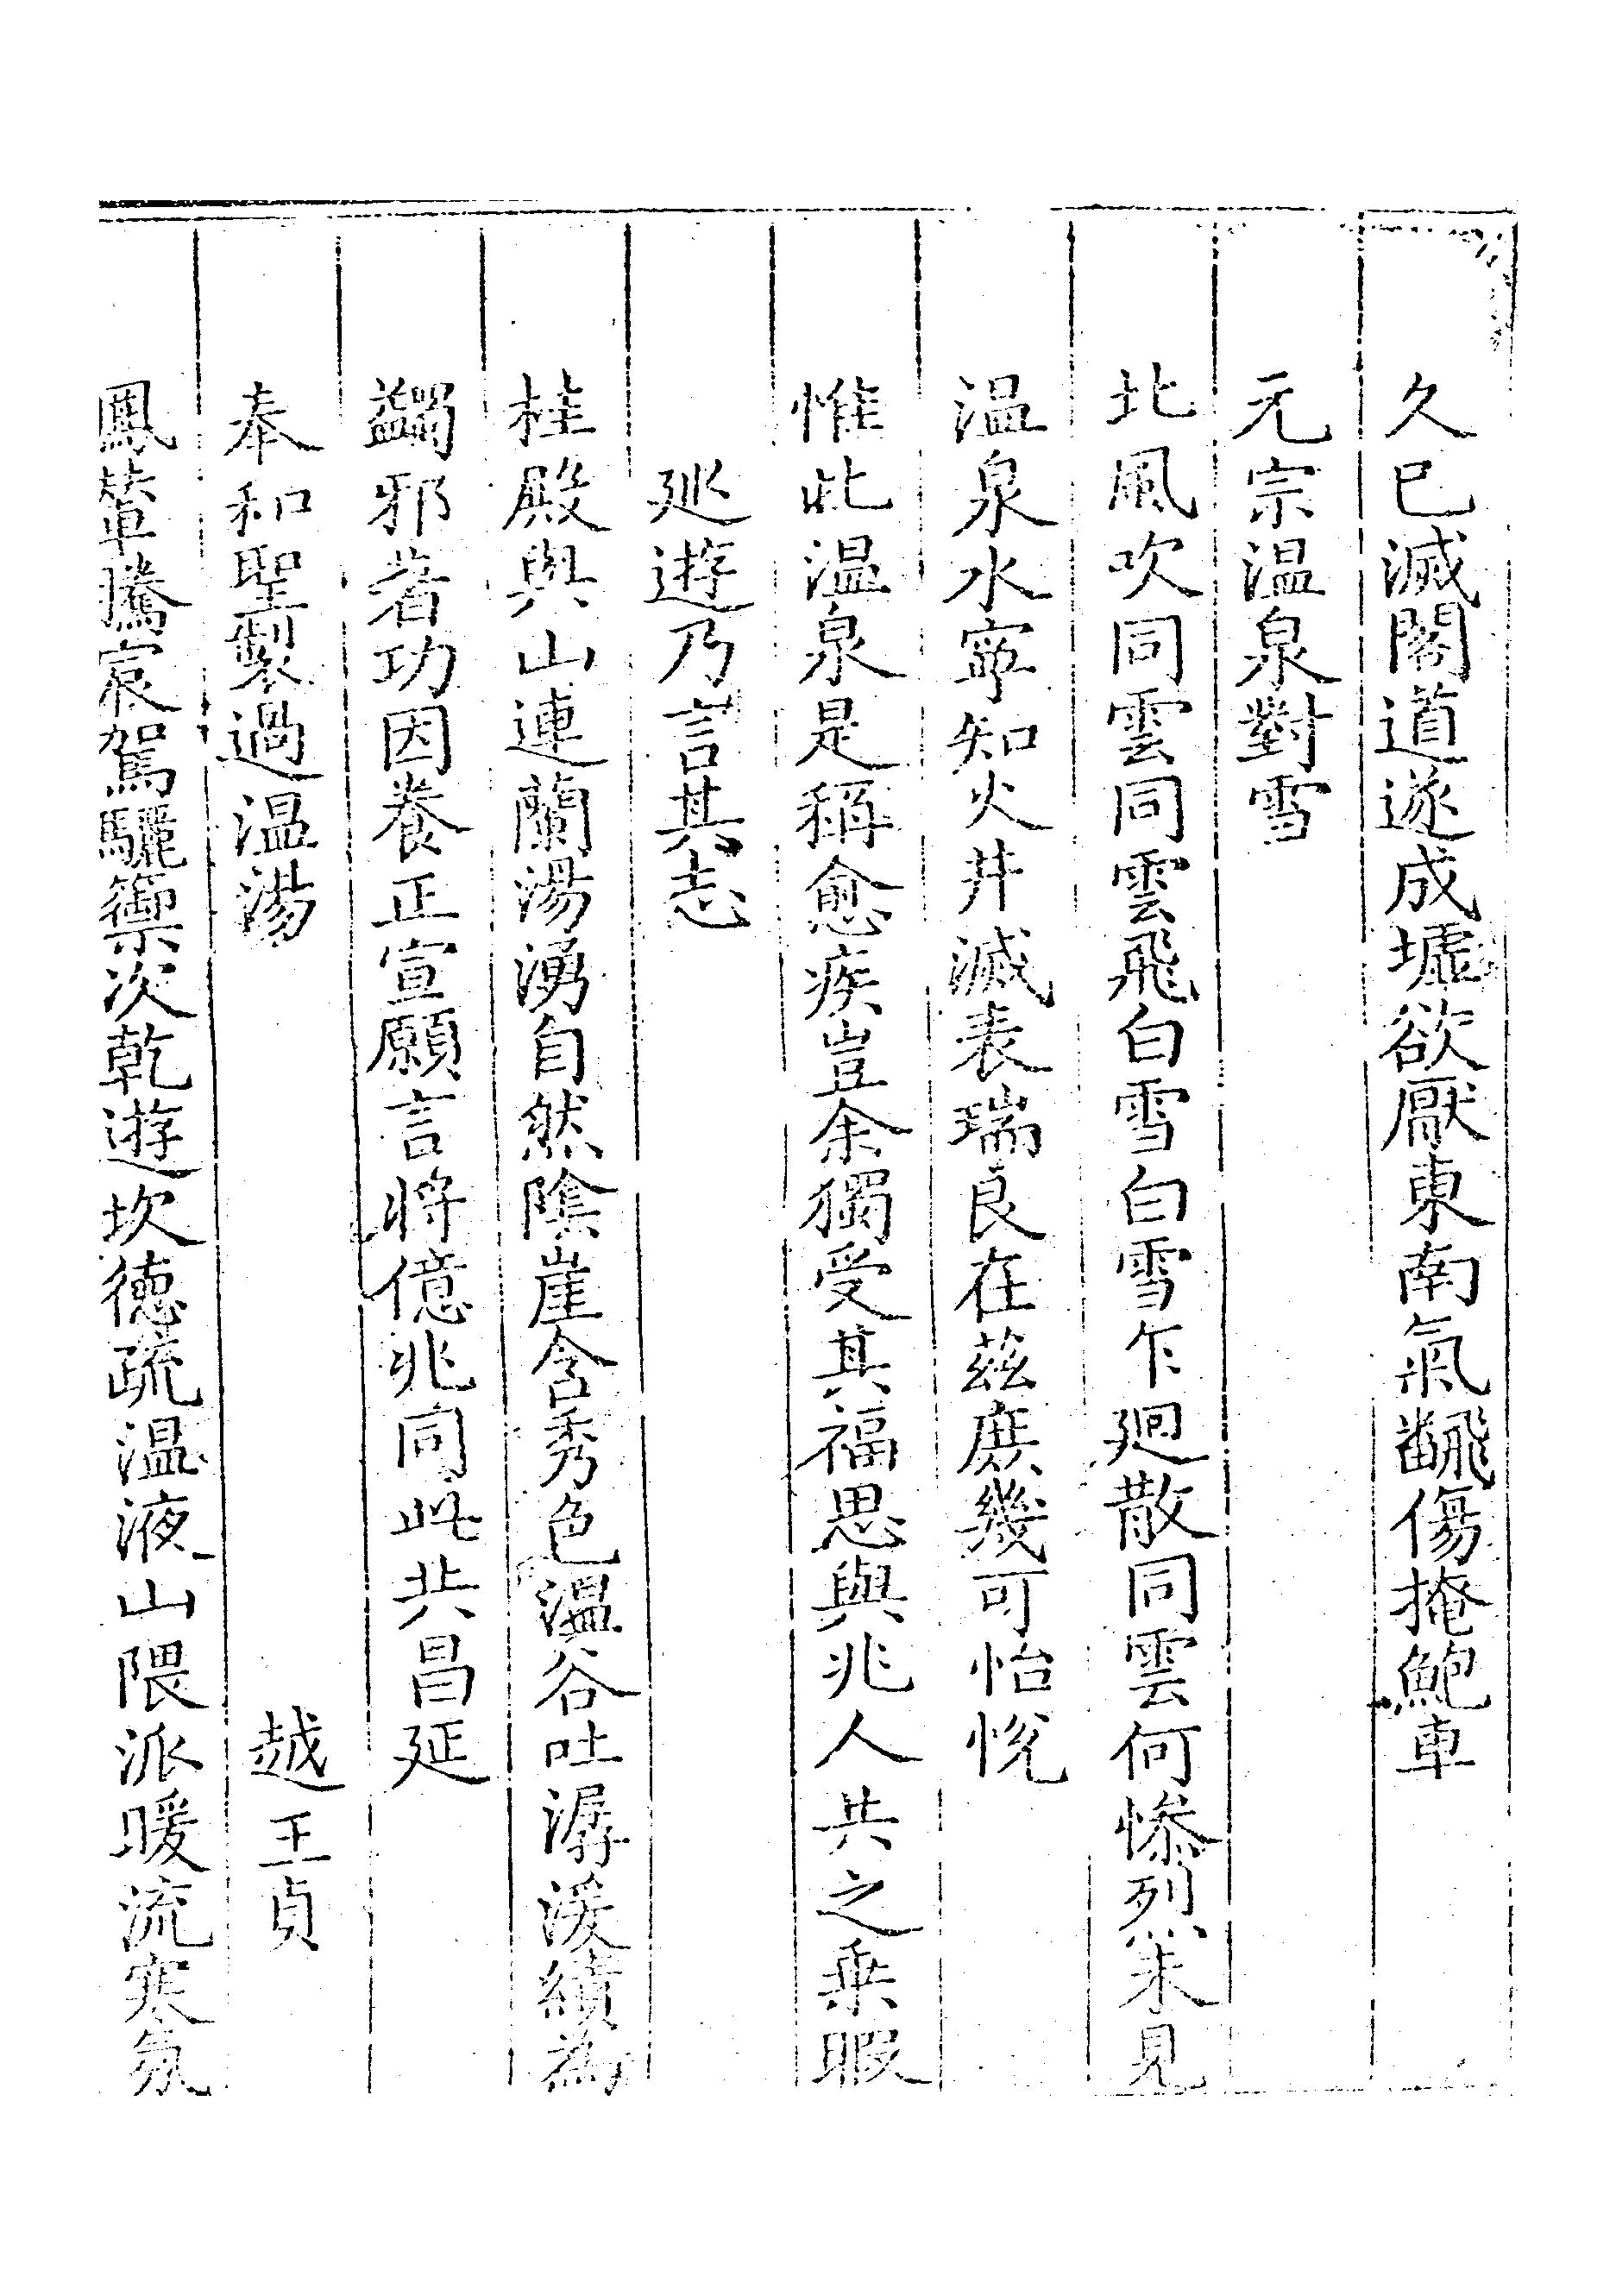 久已滅閣道遂成墟欲厭東南氣飜傷掩鮑車
元宗温泉對雪
北風吹同雲同雲飛白雪白雪乍廻散同雲何慘烈未見
温泉水寧知火井滅表瑞良在兹庶幾可怡悅
惟此温泉是稱愈疾豈余獨受其福思與兆人共之乗暇
廵遊乃言其志
桂殿與山連蘭湯湧自然陰崖含秀色温谷吐潺湲績為
蠲邪著功因養正宣願言將億兆同此共昌延
奉和聖製過温湯　越王貞
鳳輦騰宸駕驪籞次乾遊坎德疏温液山隈派暖流寒氛